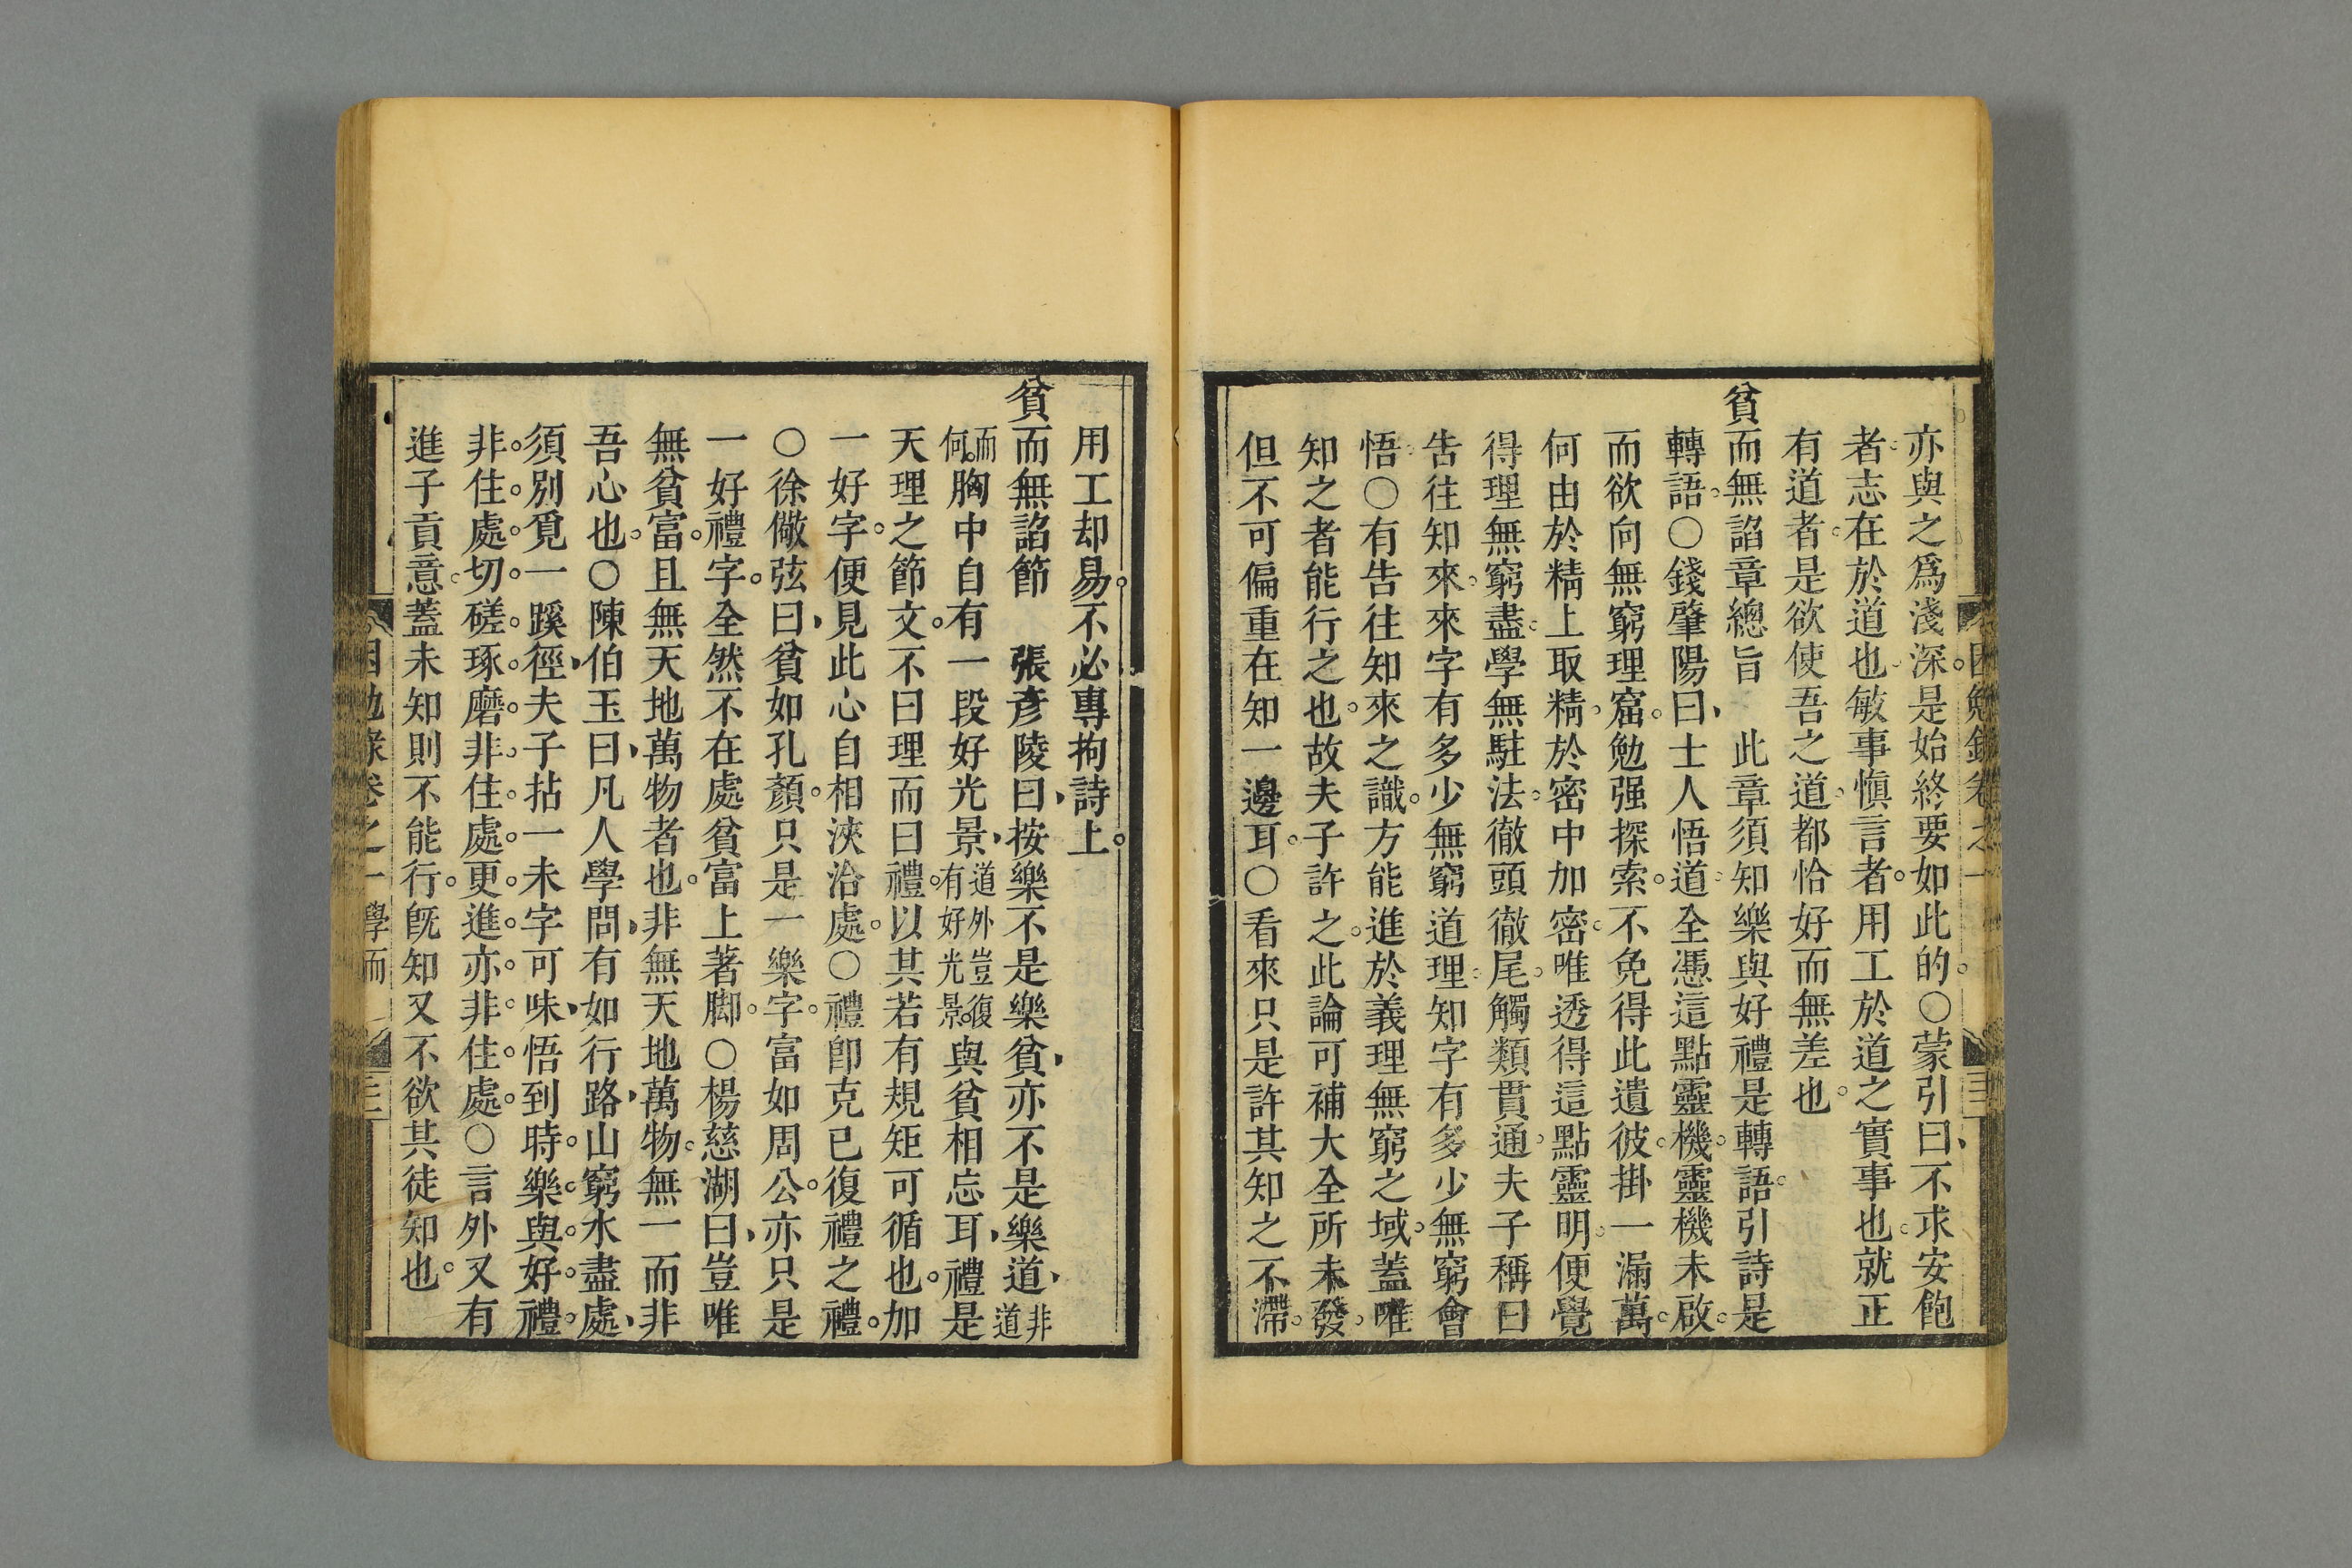 亦與之爲淺深。是始終要如此的。○蒙引曰、不求安飽
者。志在於道也。敏事愼言者。用工於道之實事也。就正
有道者。是欲使吾之道。都恰好而無差也。
貧而無諂章總旨　此章須知樂與好禮是轉語。引詩是
轉語。○錢肇陽曰、士人悟道。全憑這點靈機。靈機未啟。
而欲向無窮理窟。勉强探索。不免得此遺彼。掛一漏萬。
何由於精上取精。於密中加密。唯透得這點靈明。便覺
得理無窮盡。學無駐法。徹頭徹尾。觸類貫通。夫子稱曰
告往知來。來字有多少無窮道理。知字有多少無窮會
悟。○有告往知來之識。方能進於義理無窮之域。蓋唯
知之者能行之也。故夫子許之。此論可補大全所未發。
但不可偏重在知一邊耳。○看來只是許其知之不滯。
困勉錄卷之一
用工却易。不必專拘詩上。
貧而無諂節　張彥陵曰、按樂不是樂貧、亦不是樂道、非道
而何。胸中自有一段好光景、道外豈復有好光景。與貧相忘耳、禮是
天理之節文。不曰理而曰禮。以其若有規矩可循也。加
一好字。便見此心自相浹洽處。○禮卽克已復禮之禮。
○徐儆弦曰、貧如孔顏。只是一樂字。富如周公。亦只是
一好禮字。全然不在處貧富上著脚。○楊慈湖曰、豈唯
無貧富。且無天地萬物者也。非無天地萬物。無一而非
吾心也。○陳伯玉曰、凡人學問、有如行路、山窮水盡處、
須別覓一蹊徑、夫子拈一未字可味、悟到時。樂與好禮。
非住處。切磋琢磨。非住處。更進。亦非住處。○言外又有
進子貢意。蓋未知則不能行。旣知又不欲其徒知也。
困勉錄卷之一 學而